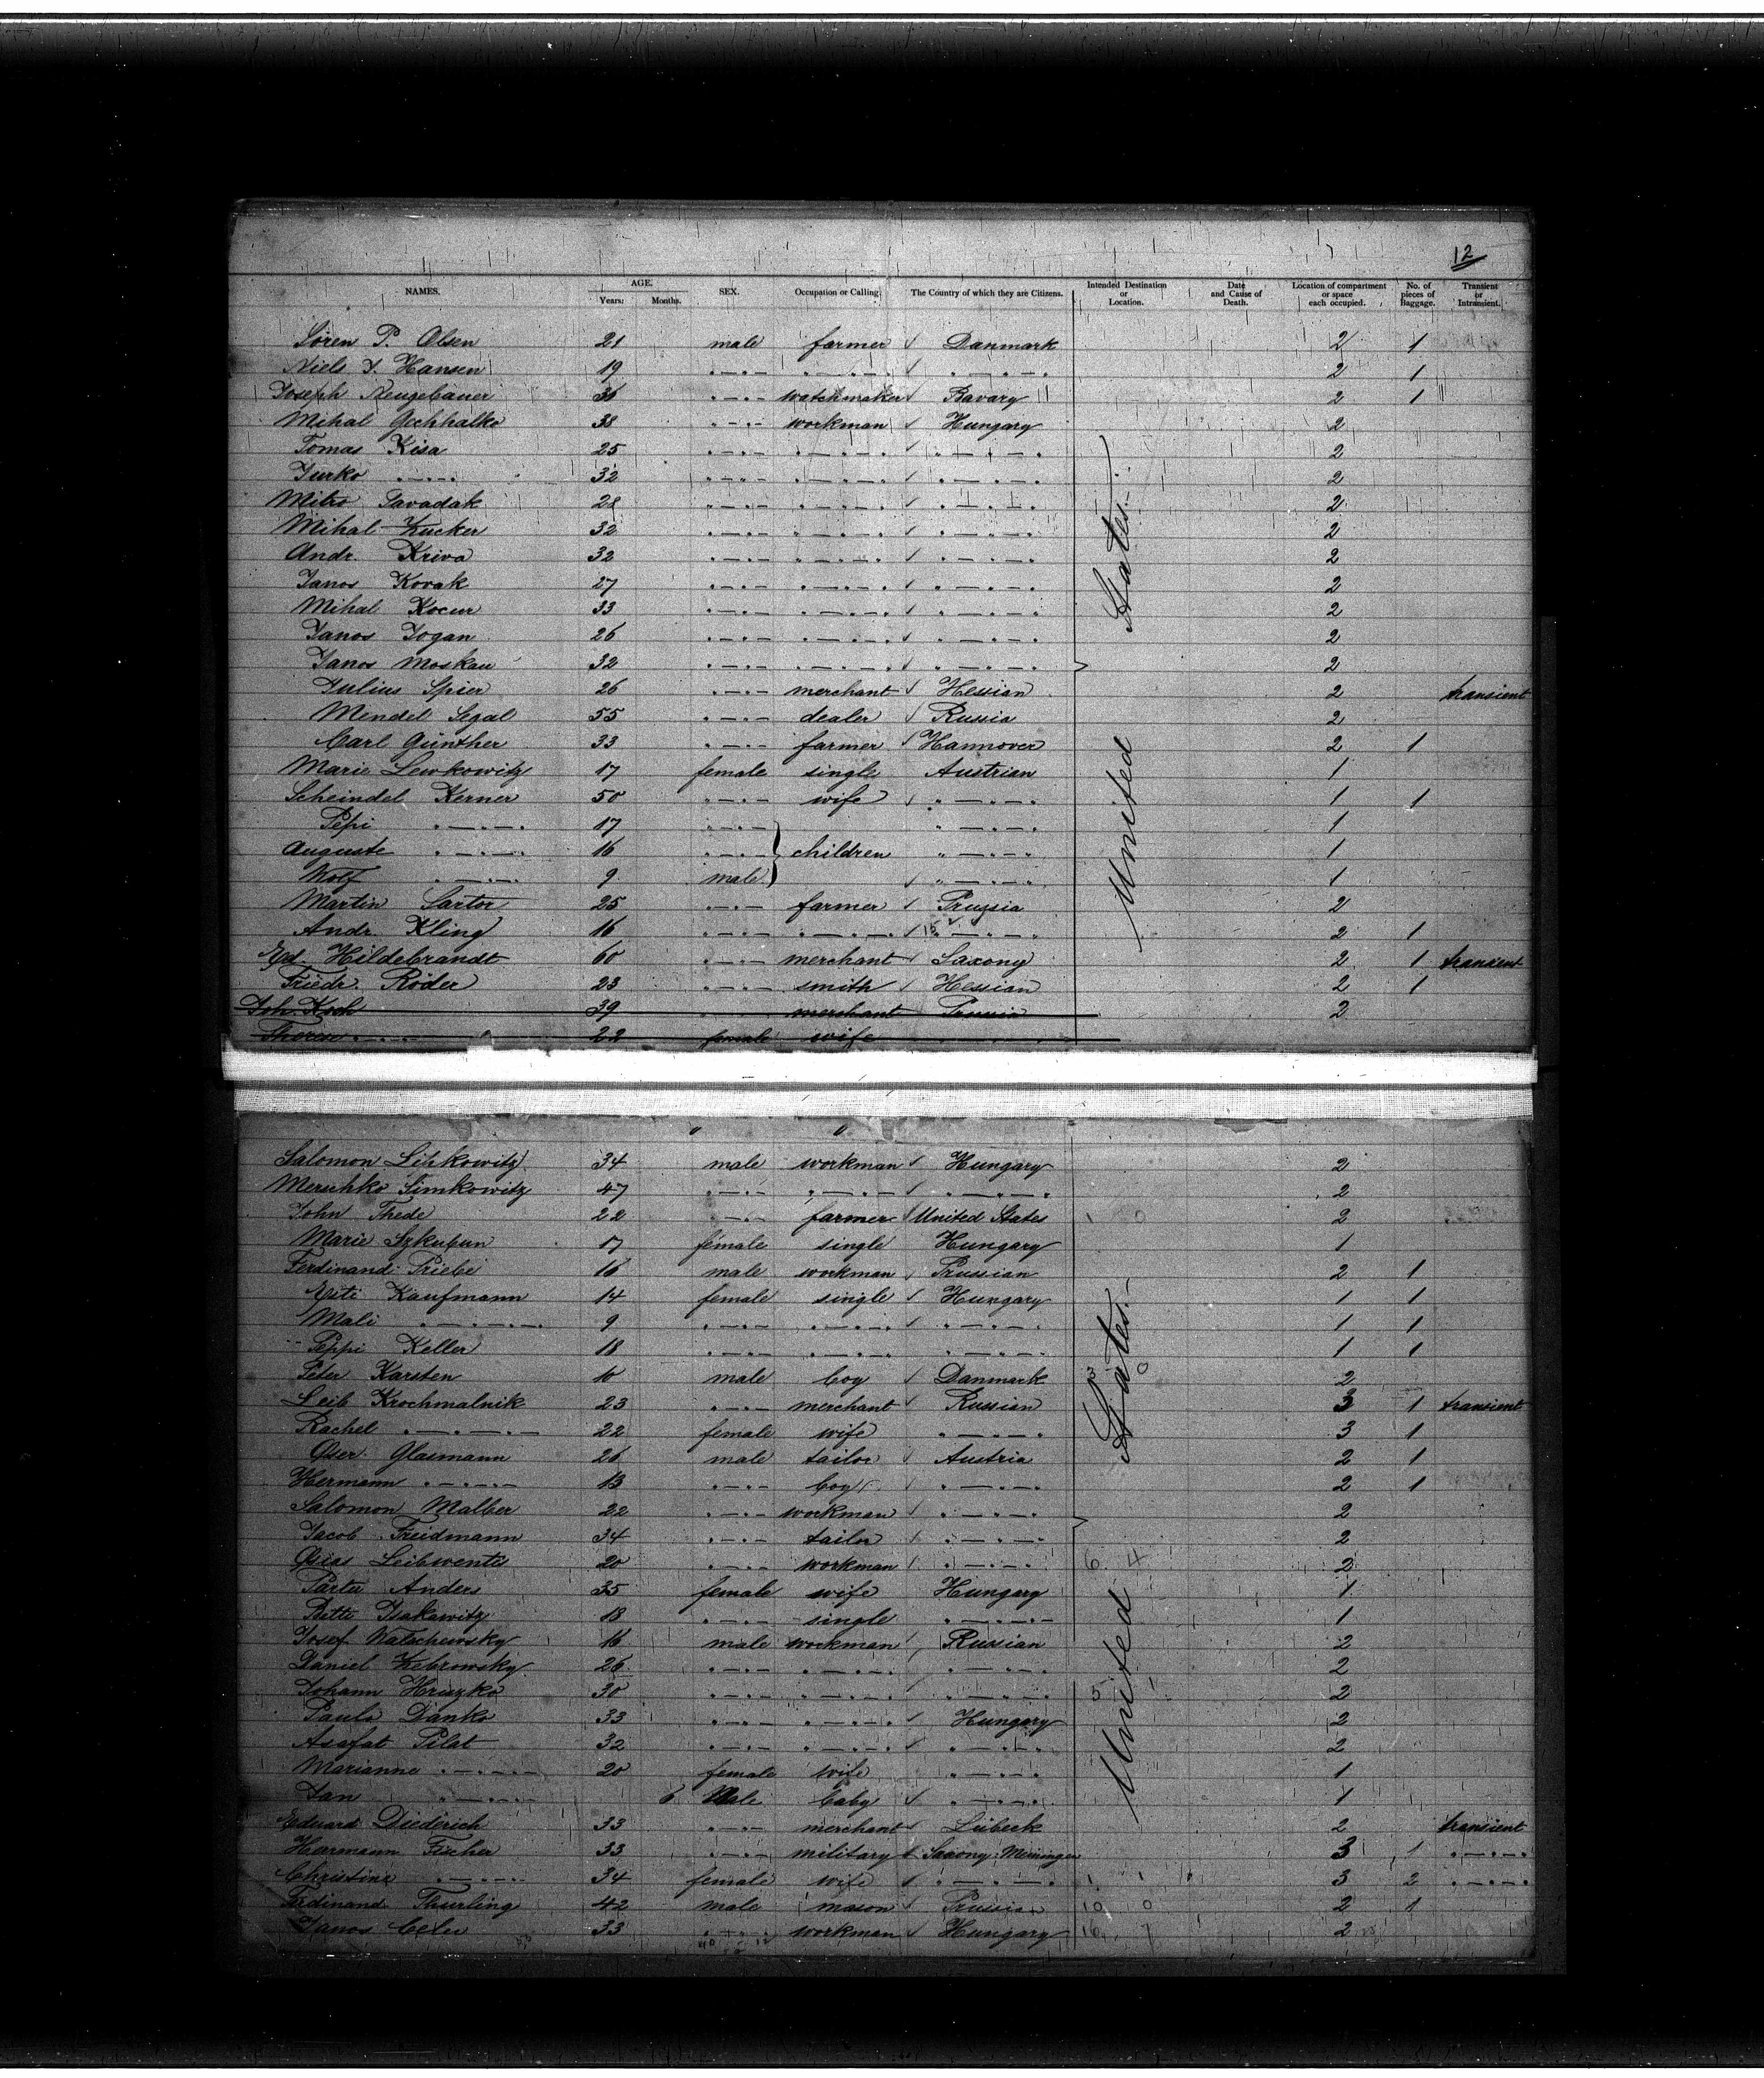 12
NAMES. AGE. Years. Months. SEX. Occupation or Calling. The Country of which they are Citizens. Intended Destination or Location. Date and Cause of Death. Location of compartment or space each occupied. No. of pieces of Baggage. Transient or Intransient.
Sören P. Olsen 21 male farmer ✓ Danmark 2 1
Niels Hansen 19 " " ✓ " 2 1
Joseph Neugebauer 36 " watchmaker ✓ Bavary 2 1
Mihal 38 " workman ✓ Hungary 2
Tomas Kisa 25 " " ✓ " 2
Jurko " 32 " " ✓ " 2
Mitro Savadak 28 " " ✓ " 2
Mihal Zucker 32 " " ✓ " 2
Andr. Kriva 32 " " ✓ " 2
Janos Kovak 27 " " ✓ " 2
Mihal Kocur 33 " " ✓ " 2
Janos Jogan 26 " " ✓ " 2
Janos Moskau 32 " " ✓ " 2
Julius Spier 26 " merchant ✓ Hessian 2 transient
Mendel Segal 55 " dealer ✓ Russia 2
Carl Günther 33 " farmer ✓ Hannover 2 1
Marie Lewkowitz 17 female single Austrian 1
Scheindel Kerner 50 " wife ✓ " 1 1
Pepi " 17 " " 1
Auguste " 16 " children " 1
Wolf " 9 male ✓ " 1
Martin Sartor 25 " farmer ✓ Prussia 2
Andr. Kling 16 " " ✓ 15 " 2 1
Ed. Hildebrandt 60 " merchant ✓ Saxony 2 1 transient
Friedr. Röder 23 " smith ✓ Hessian 2 1
Joh. Koch 39 " merchant Prussia 2
Therese " 22 female wife "
United States.
Salomon Lihkowitz 34 male workman ✓ Hungary 2
Merschko Simkowitz 47 " " ✓ " 2
John Thede 22 " farmer ✓ United States 1 0 2
Marie Szkubun 17 female single Hungary 1
Ferdinand Priebe 16 male workman ✓ Prussian 2 1
Esti Kaufmann 14 female single ✓ Hungary 1 1
Mali " 9 " " ✓ " 1 1
Peppi Keller 18 " " " 1 1
Peter Karsten 10 male boy ✓ Danmark 3 0 2
Leib Krochmalnik 23 " merchant ✓ Russian 3 1 transient
Rachel " 22 female wife " 3 1
Oser Glasmann 26 male tailor ✓ Austria 2 1
Hermann " 13 " boy ✓ " 2 1
Salomon Malber 22 " workman ✓ " 2
Jacob Freidmann 34 " tailor ✓ " 2
Osias Leibwentis 20 " workman ✓ " 6 4 2
Anders 35 female wife Hungary 1
Betti Isakawitz 18 " single " 1
Josef Watschewsky 16 male workman ✓ Russian 2
Daniel Zebrowsky 26 " " ✓ " 2
Johann Hruzko 30 " " ✓ " 5 2
Paulo Danko 33 " " ✓ Hungary 2
Asafat Pilat 32 " " ✓ " 2
Marianne " 20 female wife " 1
Jan " 6 Male baby ✓ " 1
Eduard Diederich 33 " merchant ✓ Lübeck 2 transient
Herrmann Fischer 33 " military ✓ Saxony-Meiningen 3 1 "
Christine " 34 female wife ✓ " 1 1 3 2 "
Ferdinand Thurling 42 male mason ✓ Prussia 10 0 2 1
Janos 33 " workman ✓ Hungary 16 7 2
United States.